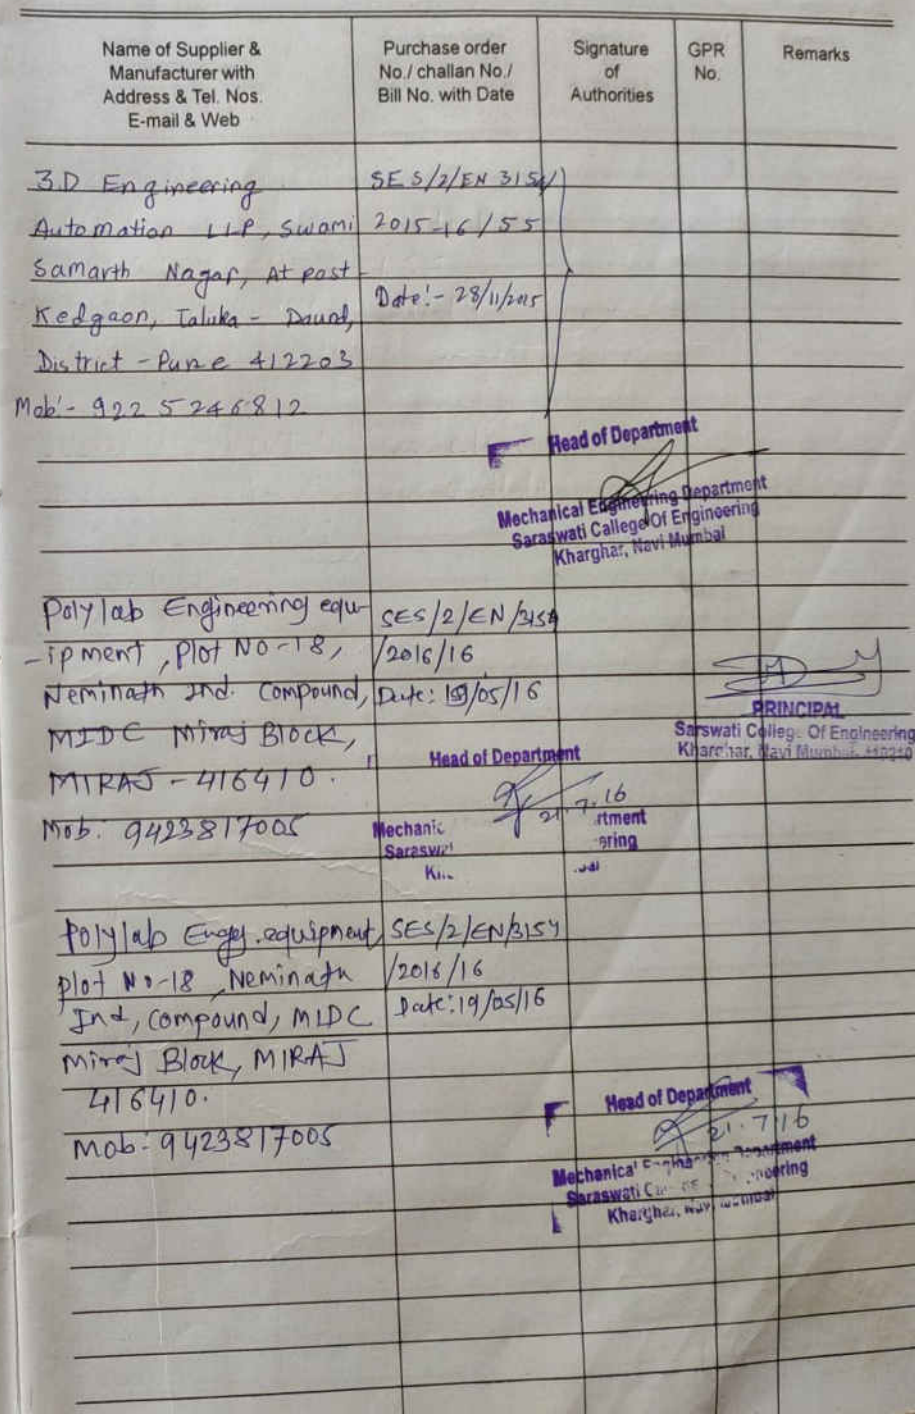 Name of Supplier &
Manufacturer with
Address & Tel. Nos.
E-mail & Web
Purchase order
No./ challan No./
Bill No. with Date
Signature
of
Authorities
GPR
No.
Remarks
3D Engineering
Automation LLP, Swami
Samarth Nagar, At post
Kedgaon, Taluka - Daund,
District - Pune 412203
Mob:- 922 5246812
SES/2/EN 3154/
2015-16/55
Date:- 28/11/2015
Head of Department
Mechanical Engineering Department
Saraswati Callege Of Engineering
Kharghar, Navi Mumbai
Polylab Engineering equ-
-ipment, Plot No-18,
Neminath Ind. Compound,
MIDC Miraj Block,
MIRAJ - 416410.
Mob: 9423817005
SES/2/EN/3154
/2016/16
Date: 19/05/16
PRINCIPAL
Sarswati College Of Engineering
Kharghar, Navi Mumbai
Head of Department
21.7.16
Mechanic
rtment
Saraswati
ering
Polylab Engg. equipment,
Plot No-18, Neminath
Ind, Compound, MIDC
Miraj Block, MIRAJ
416410.
Mob: 9423817005
SES/2/EN/3154
/2016/16
Date: 19/05/16
Head of Department
21.7.16
Mechanical Department
Saraswati
Kharghar, Navi Mumbai